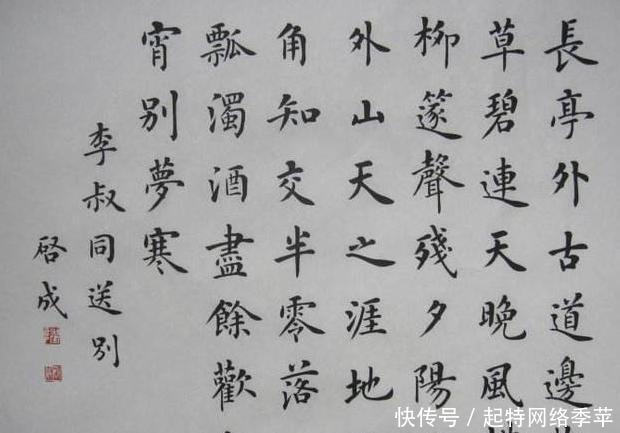 長亭外古道邊
草碧連天晚風
柳篴聲殘夕陽
外山天之涯地
角知交半零落
瓢濁酒盡餘歡
宵別夢寒
李叔同送別
啓成
快传号 / 起特网络季苹